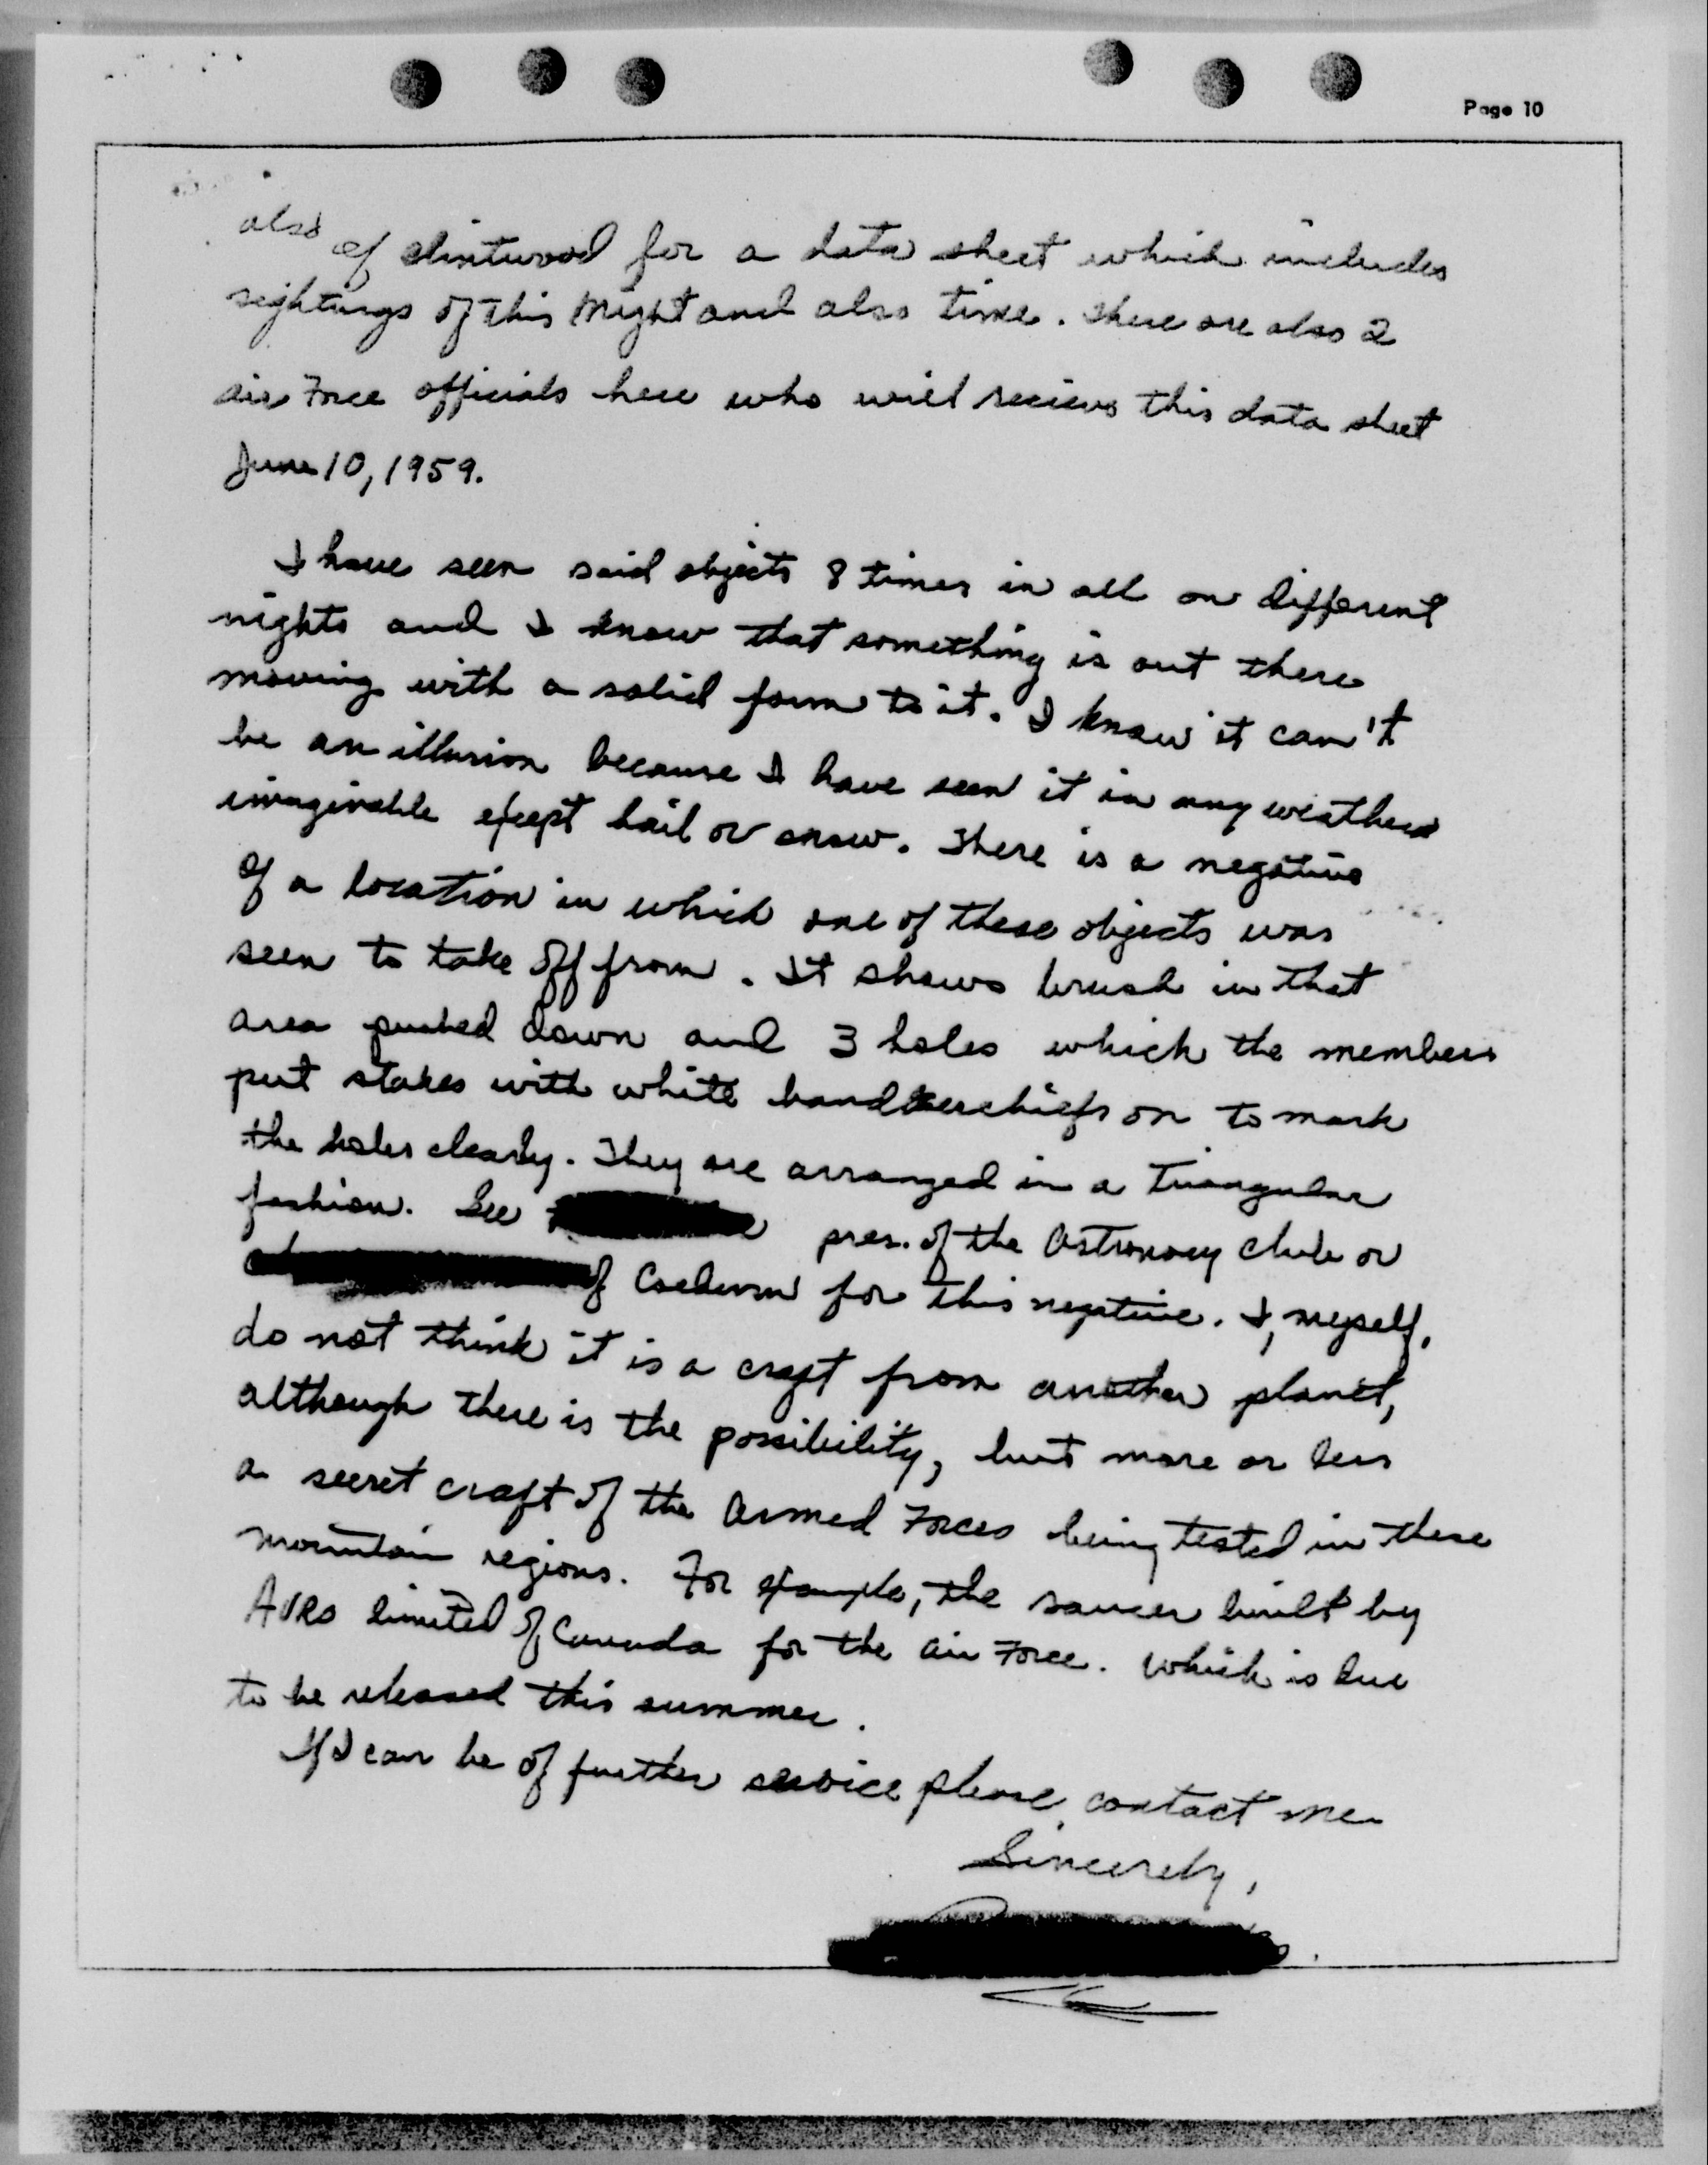 Page 10
also of Clintwood for a data sheet which includes
sightings of this night and also time. There are also 2
air Force officials here who will recieve this data sheet
June 10, 1959.
I have seen said objects 8 times in all on different
nights and I know that something is out there
moving with a solid form to it. I know it can't
be an illusion because I have seen it in any weather
imaginable except hail or snow. There is a negative
of a location in which one of these objects was
seen to take off from. It shows brush in that
area pushed down and 3 holes which the members
put stakes with white handkerchiefs on to mark
the holes clearly. They are arranged in a Triangular
fashion. See pres. of the Astronomy Club or
of Coeburn for this negative. I, myself,
do not think it is a craft from another planet,
although there is the possibility, but more or less
a secret craft of the Armed Forces being tested in these
mountain regions. For example, the saucer built by
AVRO limited of Canada for the Air Force. Which is due
to be released this summer.
If I can be of further service please contact me
Sincerely,